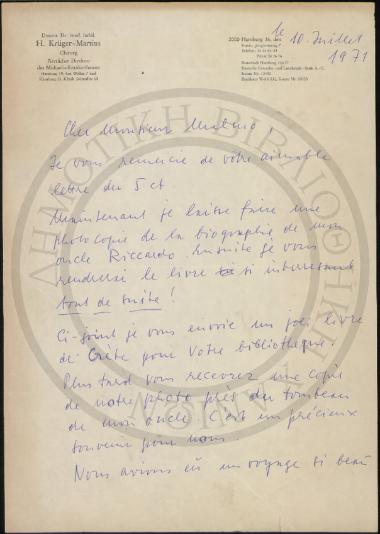 Dozent Dr. med. habil.
H. Krüger-Martius
Chirurg
Ärztlicher Direktor
des Michaelis-Krankenhauses
2000 Hamburg 36, den
le 10. Juillet
1971
Cher Monsieur
Je vous remercie de vôtre aimable
lettre du 5 ct
Maintenant je laisse faire une
photocopie de la biographie de mon
oncle Riccardo. Ensuite je vous
rendrerai le livre si interressant
tout de suite!
Ci-joint je vous envoie un joli livre
de Crète pour Votre bibliotheque.
Plus tard vous recevrez une copie
de notre photo près du tombeau
de mon oncle. C'est un précieux
souvenir pour nous.
Nous avions eû un voyage si beau
ΔΗΜΟΤΙΚΗ ΒΙΒΛΙΟΘΗΚΗ